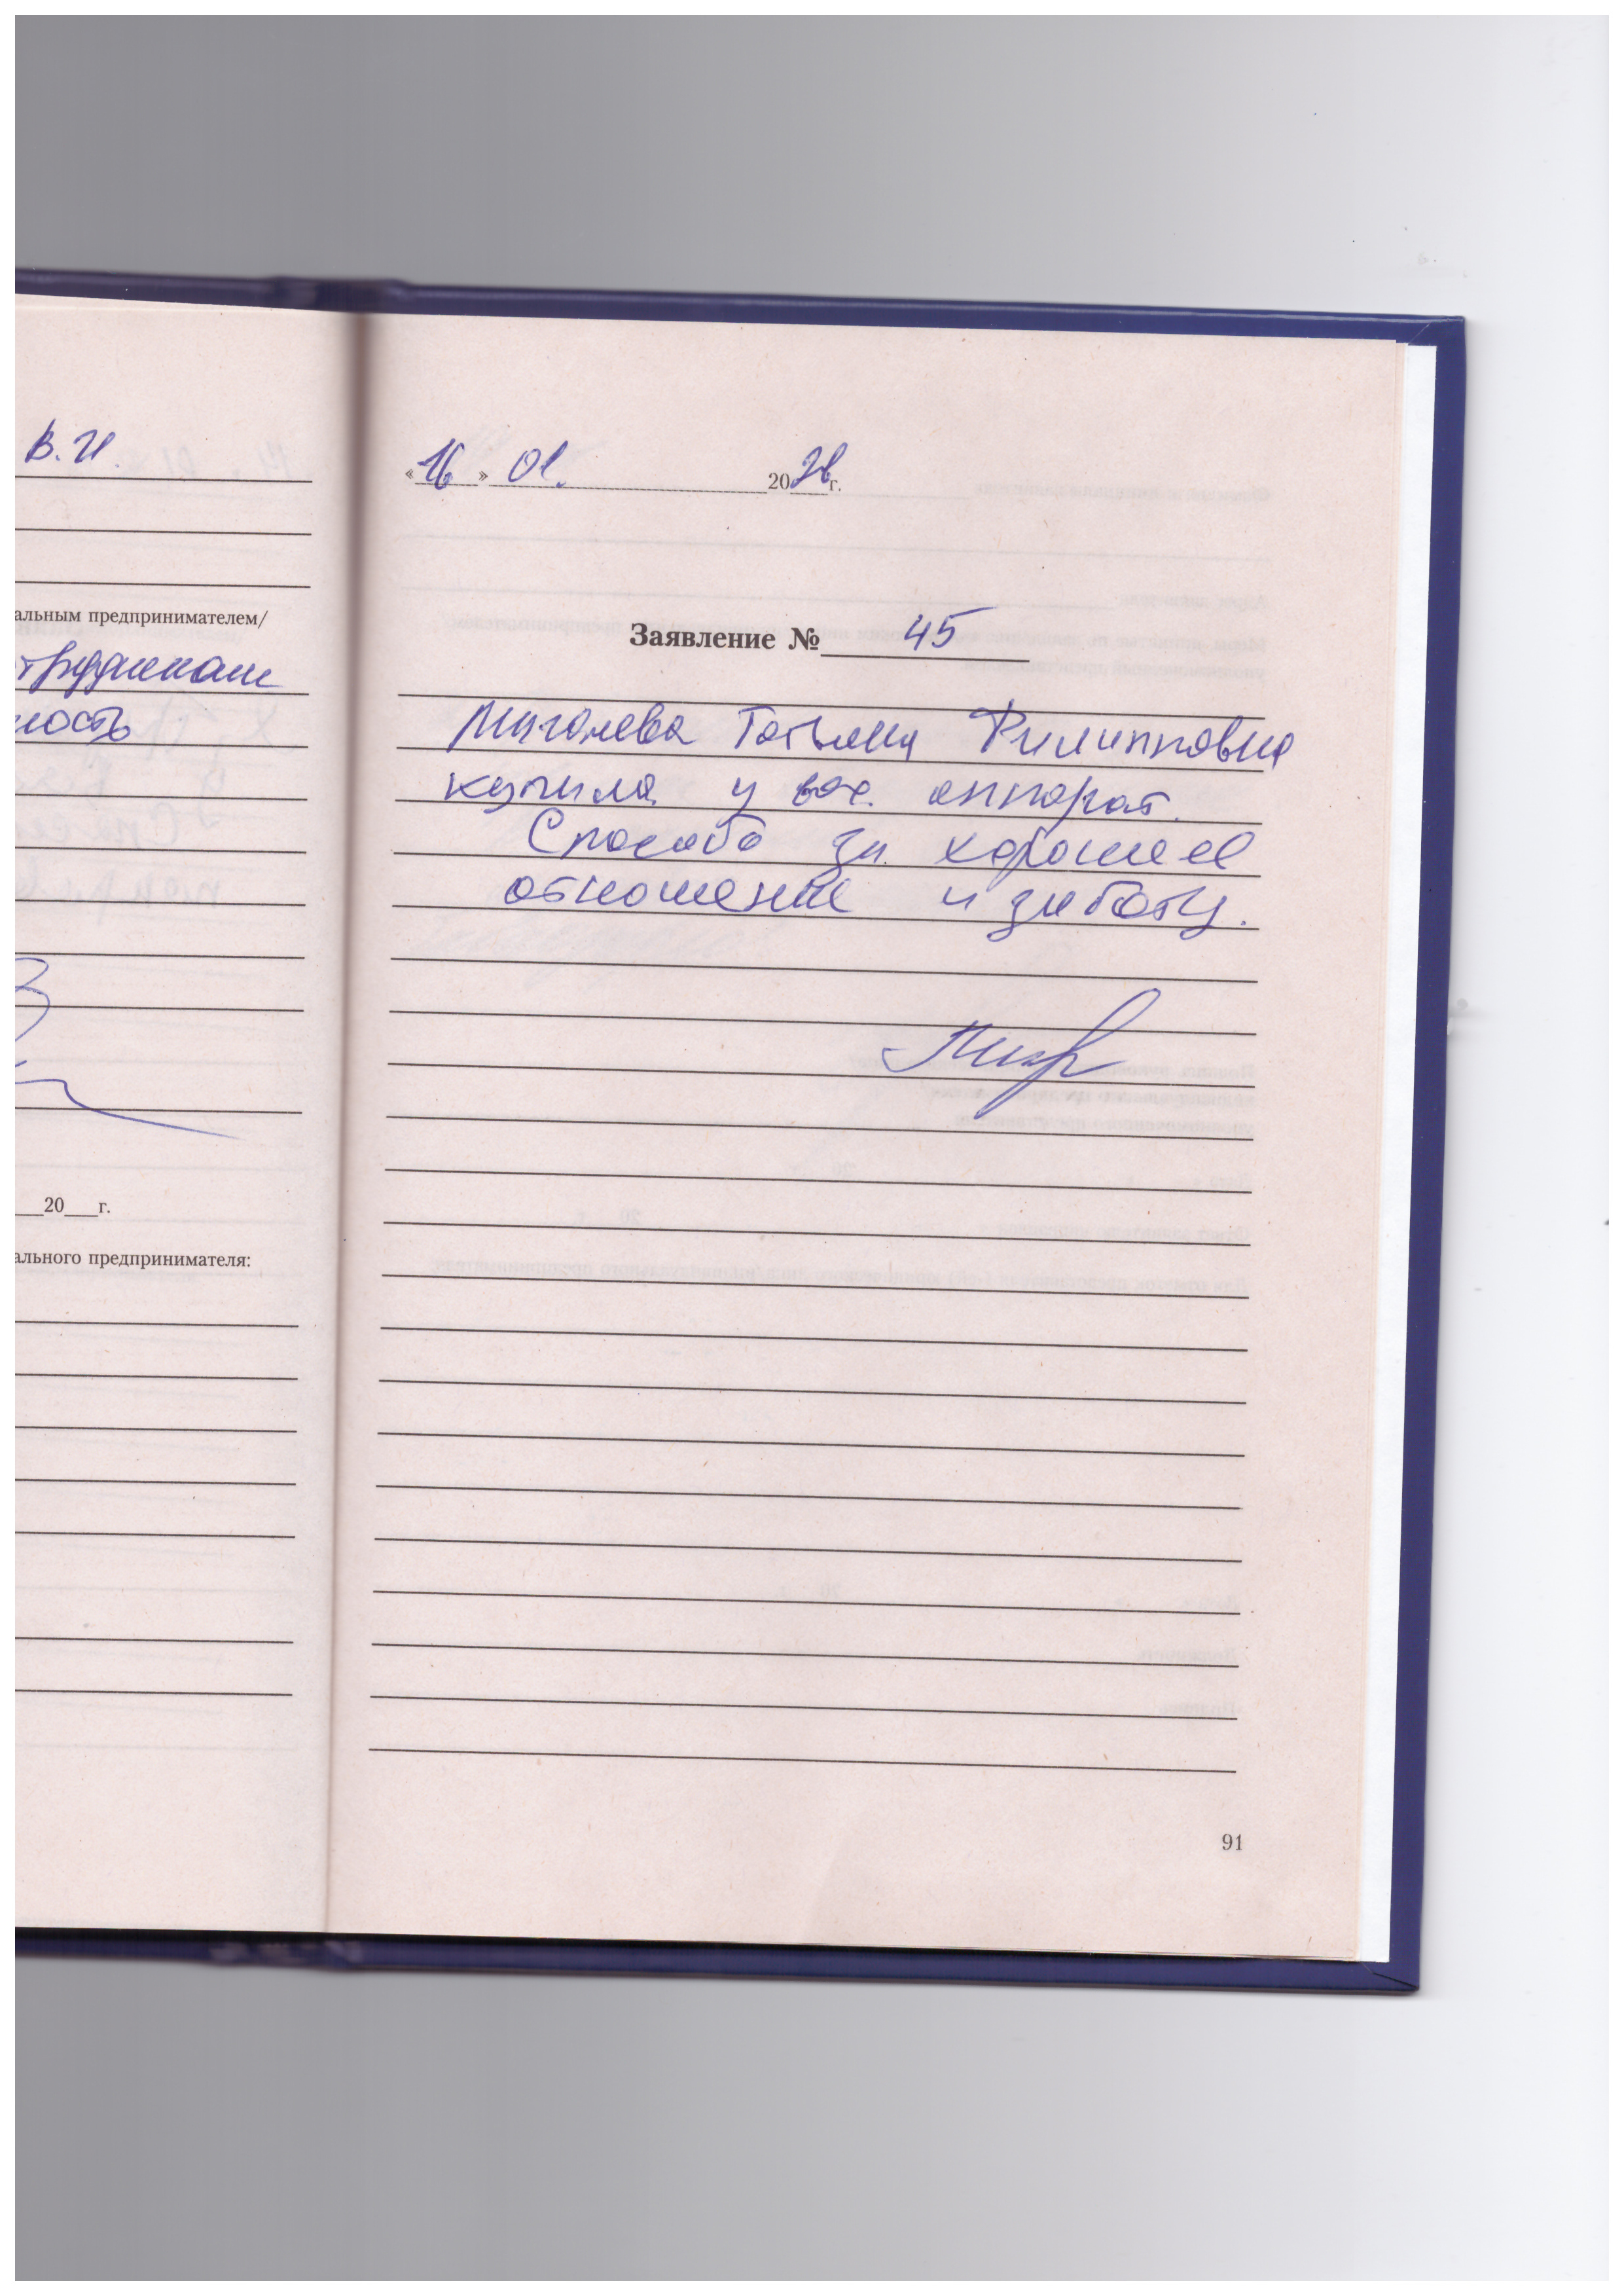 В.И
альным предпринимателем/
ность
20 г.
ального предпринимателя:
«16» 01. 2026г.
Заявление № 45
Мигалева Татьяна Филипповна
купила у вас аппарат.
Спасибо за хорошее
отношение и заботу.
91